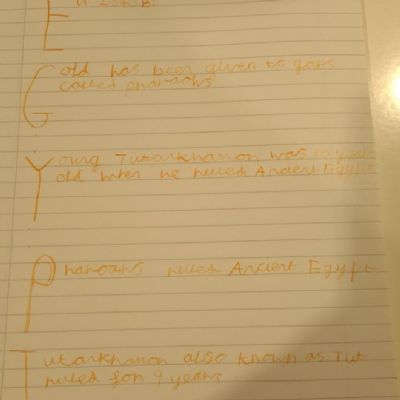 E
Gold has been given to gods
called pharaohs
Young Tutarkhamon was 10 years
old when he ruled Ancient Egypt
Pharoahs ruled Ancient Egypt
Tutarkhamon also known as Tut
ruled for 9 years